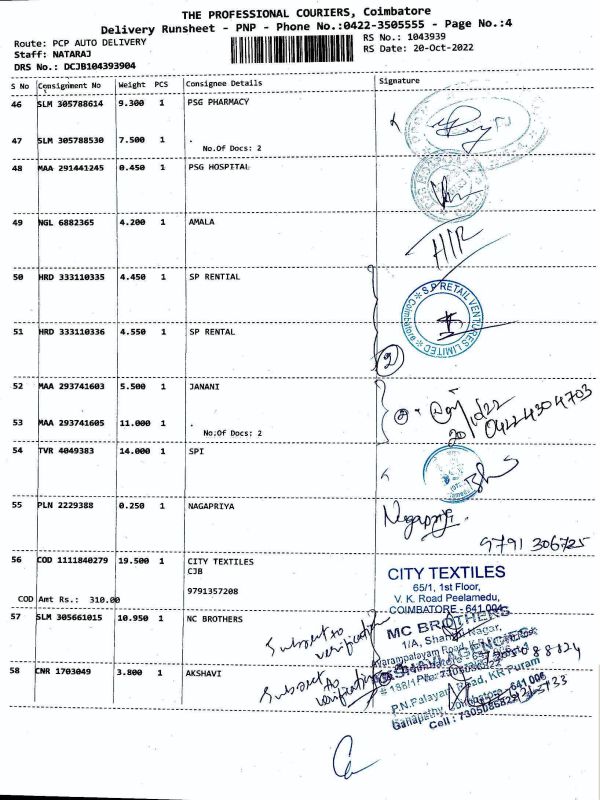 THE PROFESSIONAL COURIERS, Coimbatore
Delivery Runsheet - PNP - Phone No.:0422-3505555 - Page No.:4
Route: PCP AUTO DELIVERY
RS No.: 1043939
Staff: NATARAJ
RS Date: 20-Oct-2022
DRS No.: DCJB104393904
S No Consignment No Weight PCS Consignee Details Signature
46 SLM 305788614 9.300 1 PSG PHARMACY
47 SLM 305788530 7.500 1 .
No.Of Docs: 2
48 MAA 291441245 0.450 1 PSG HOSPITAL
49 NGL 6882365 4.200 1 AMALA
50 HRD 333110335 4.450 1 SP RENTIAL
S.P RETAIL VENTURES LIMITED
Coimbatore
51 HRD 333110336 4.550 1 SP RENTAL
2
52 MAA 293741603 5.500 1 JANANI
20/10/22
04224304703
53 MAA 293741605 11.000 1 .
No.Of Docs: 2
54 TVR 4049383 14.000 1 SPI
55 PLN 2229388 0.250 1 NAGAPRIYA
Nagapriya.
9791 306725
56 COD 1111840279 19.500 1 CITY TEXTILES
CJB
9791357208
COD Amt Rs.: 310.00
CITY TEXTILES
65/1, 1st Floor,
V. K. Road Peelamedu,
COIMBATORE - 641 004
57 SLM 305661015 10.950 1 NC BROTHERS
Subject to
verification
MC BROTHERS
1/A, Sharp Nagar,
58 CNR 1703049 3.800 1 AKSHAVI
Subject to
verification
P.N.Palayam Road, KR Puram
Ganapathy, Coimbatore - 641 006